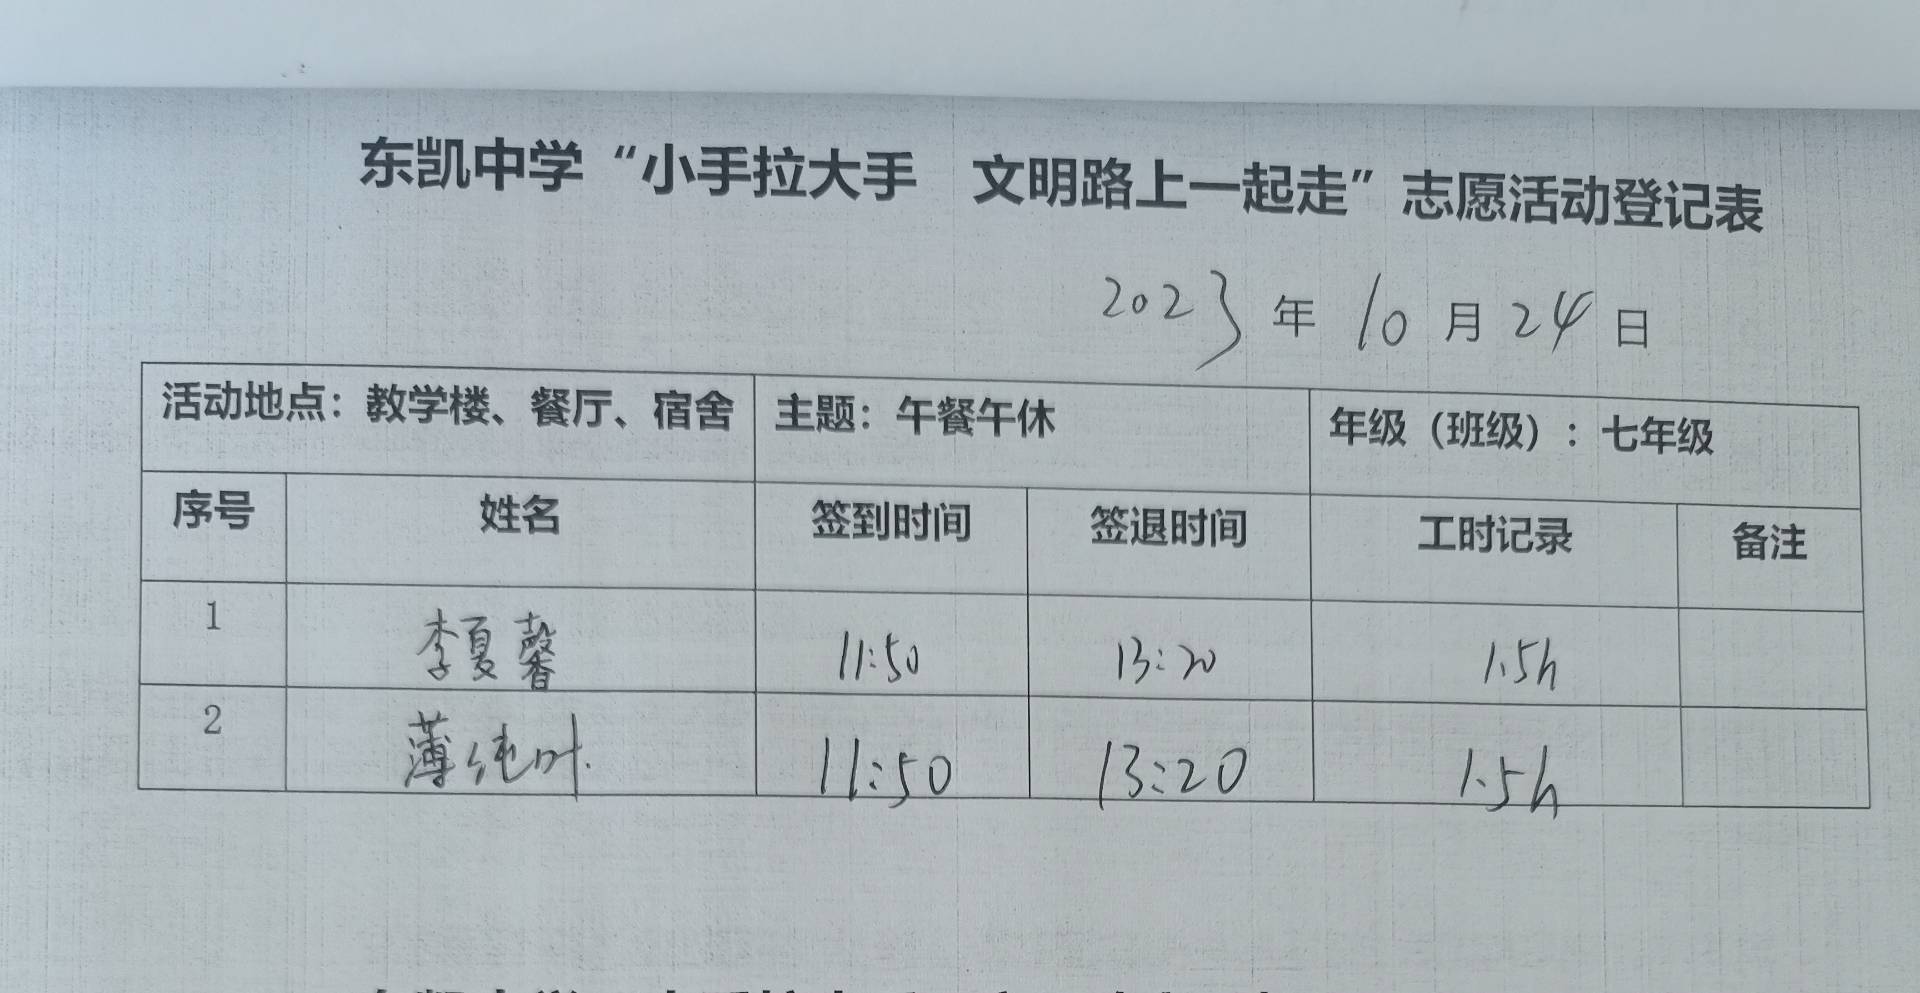 东凯中学“小手拉大手 文明路上一起走”志愿活动登记表
2023年10月24日
活动地点：教学楼、餐厅、宿舍 主题：午餐午休 年级（班级）：七年级
序号 姓名 签到时间 签退时间 工时记录 备注
1 李夏馨 11:50 13:20 1.5h
2 薄纯叶 11:50 13:20 1.5h